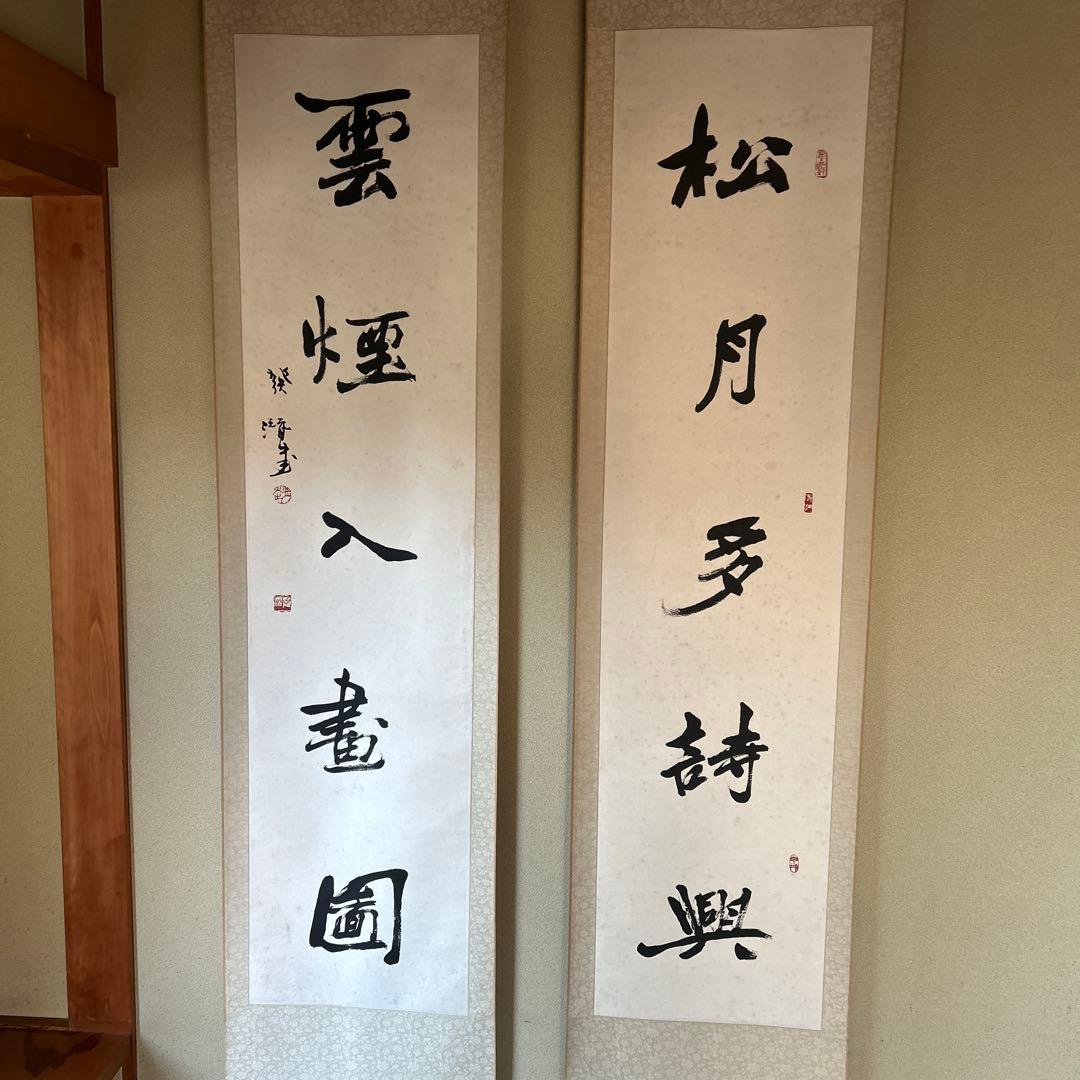 松月多詩興
雲煙入畫圖